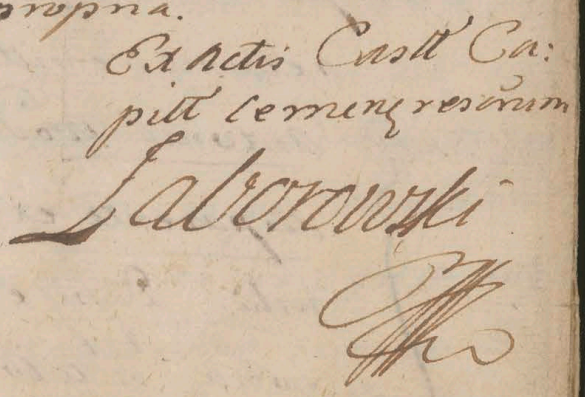 propria.
Ex Actis Castt Ca:
pitt Cemeneresium
Zaborowski